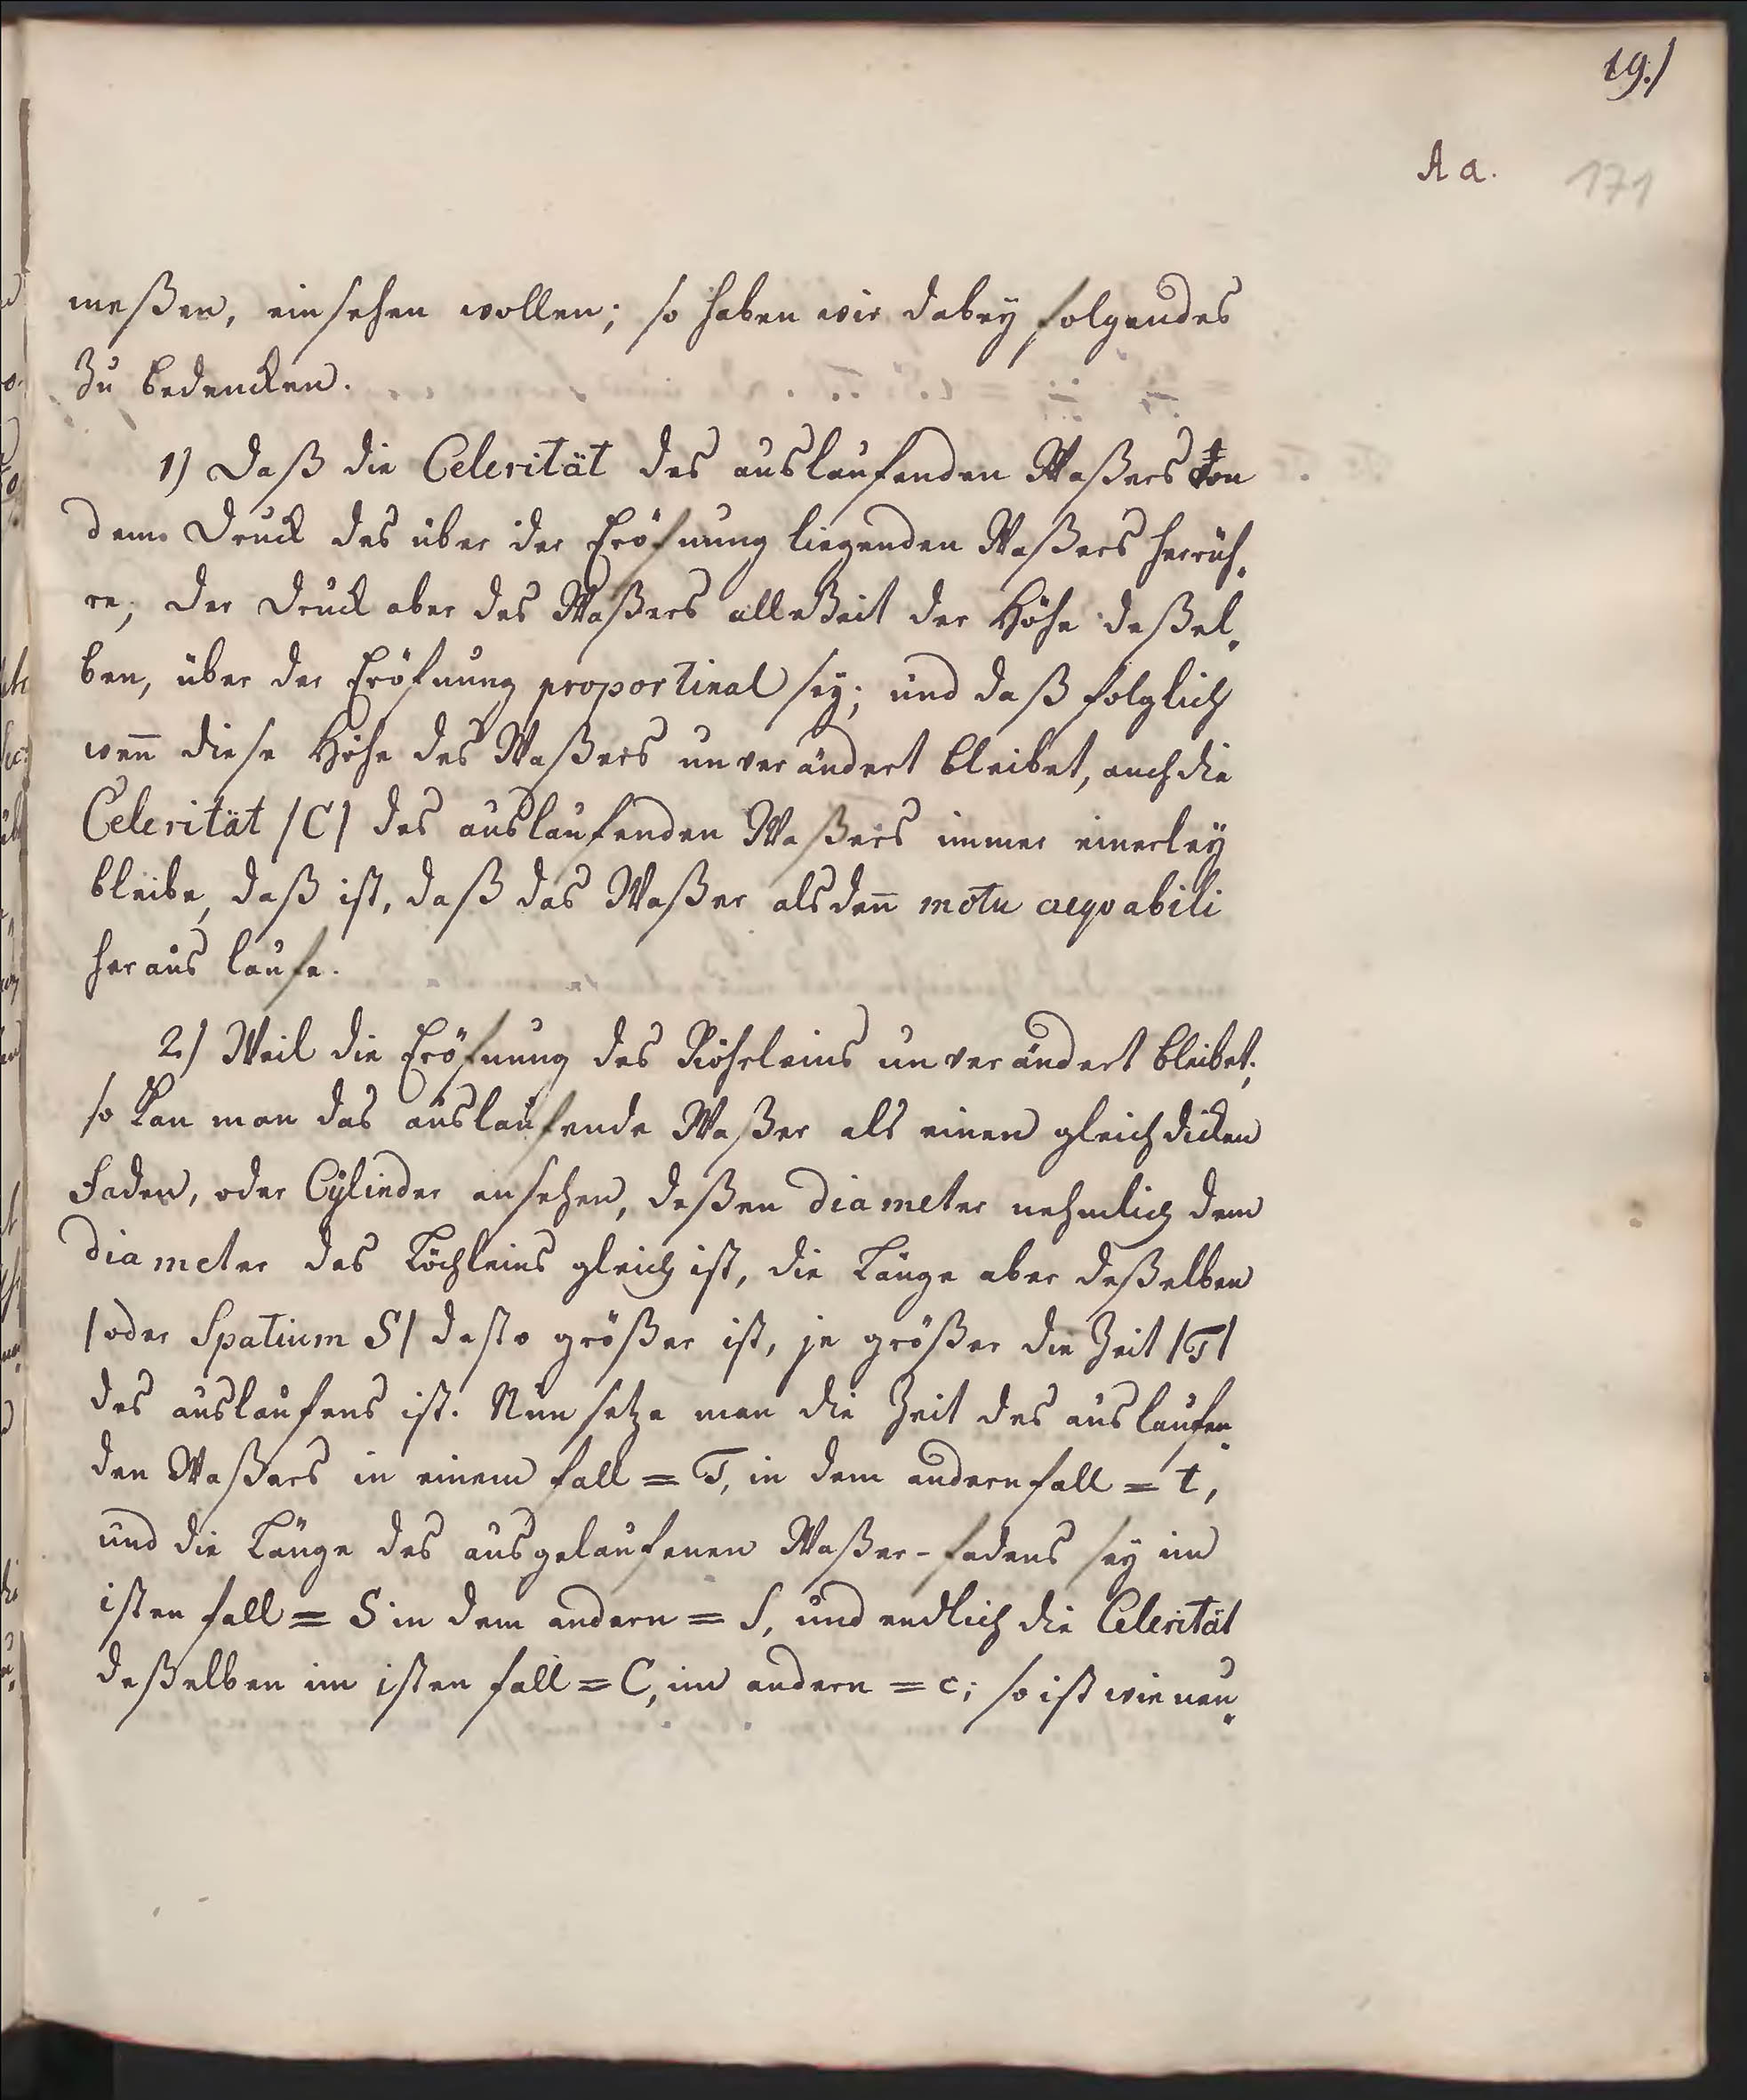 19./
Aa.
171
meßen, einsehen wollen; so haben wir dabey folgendes
zu bedencken.
1) Daß die Celerität des auslaufenden Waßers von
dem Druck des über der Eröfnung liegenden Waßers herrüh„
re; der Druck aber des Waßers alleZeit der Höhe deßel„
ben, über der Eröfnung proportinal sey; und daß folglich
weñ diese Höhe des Waßers unverändert bleibet, auch die
Celerität /C/ des auslaufenden Waßers immer einerley
bleibe, daß ist, daß das Waßer alsdeñ motu aeqvabili
heraus laufe.
2) Weil die Eröfnung des Röhrleins unverändert bleibet;
so kan man das auslaufende Waßer als einen gleich dicken
Faden, oder Cylinder ansehen, deßen diameter nehmlich dem
diameter des Löchleins gleich ist, die Länge aber deßelben
/oder Spatium S/ desto größer ist, je größer die Zeit /T/
des auslaufens ist. Nun setze man die Zeit des auslaufen„
den Waßers in einem fall = T, in dem andern fall = t,
und die Länge des ausgelaufenen Waßer-fadens sey im
isten fall = S in dem andern = s, und endlich die Celerität
deßelben im isten fall = C, im andern = c; so ist wie neu„